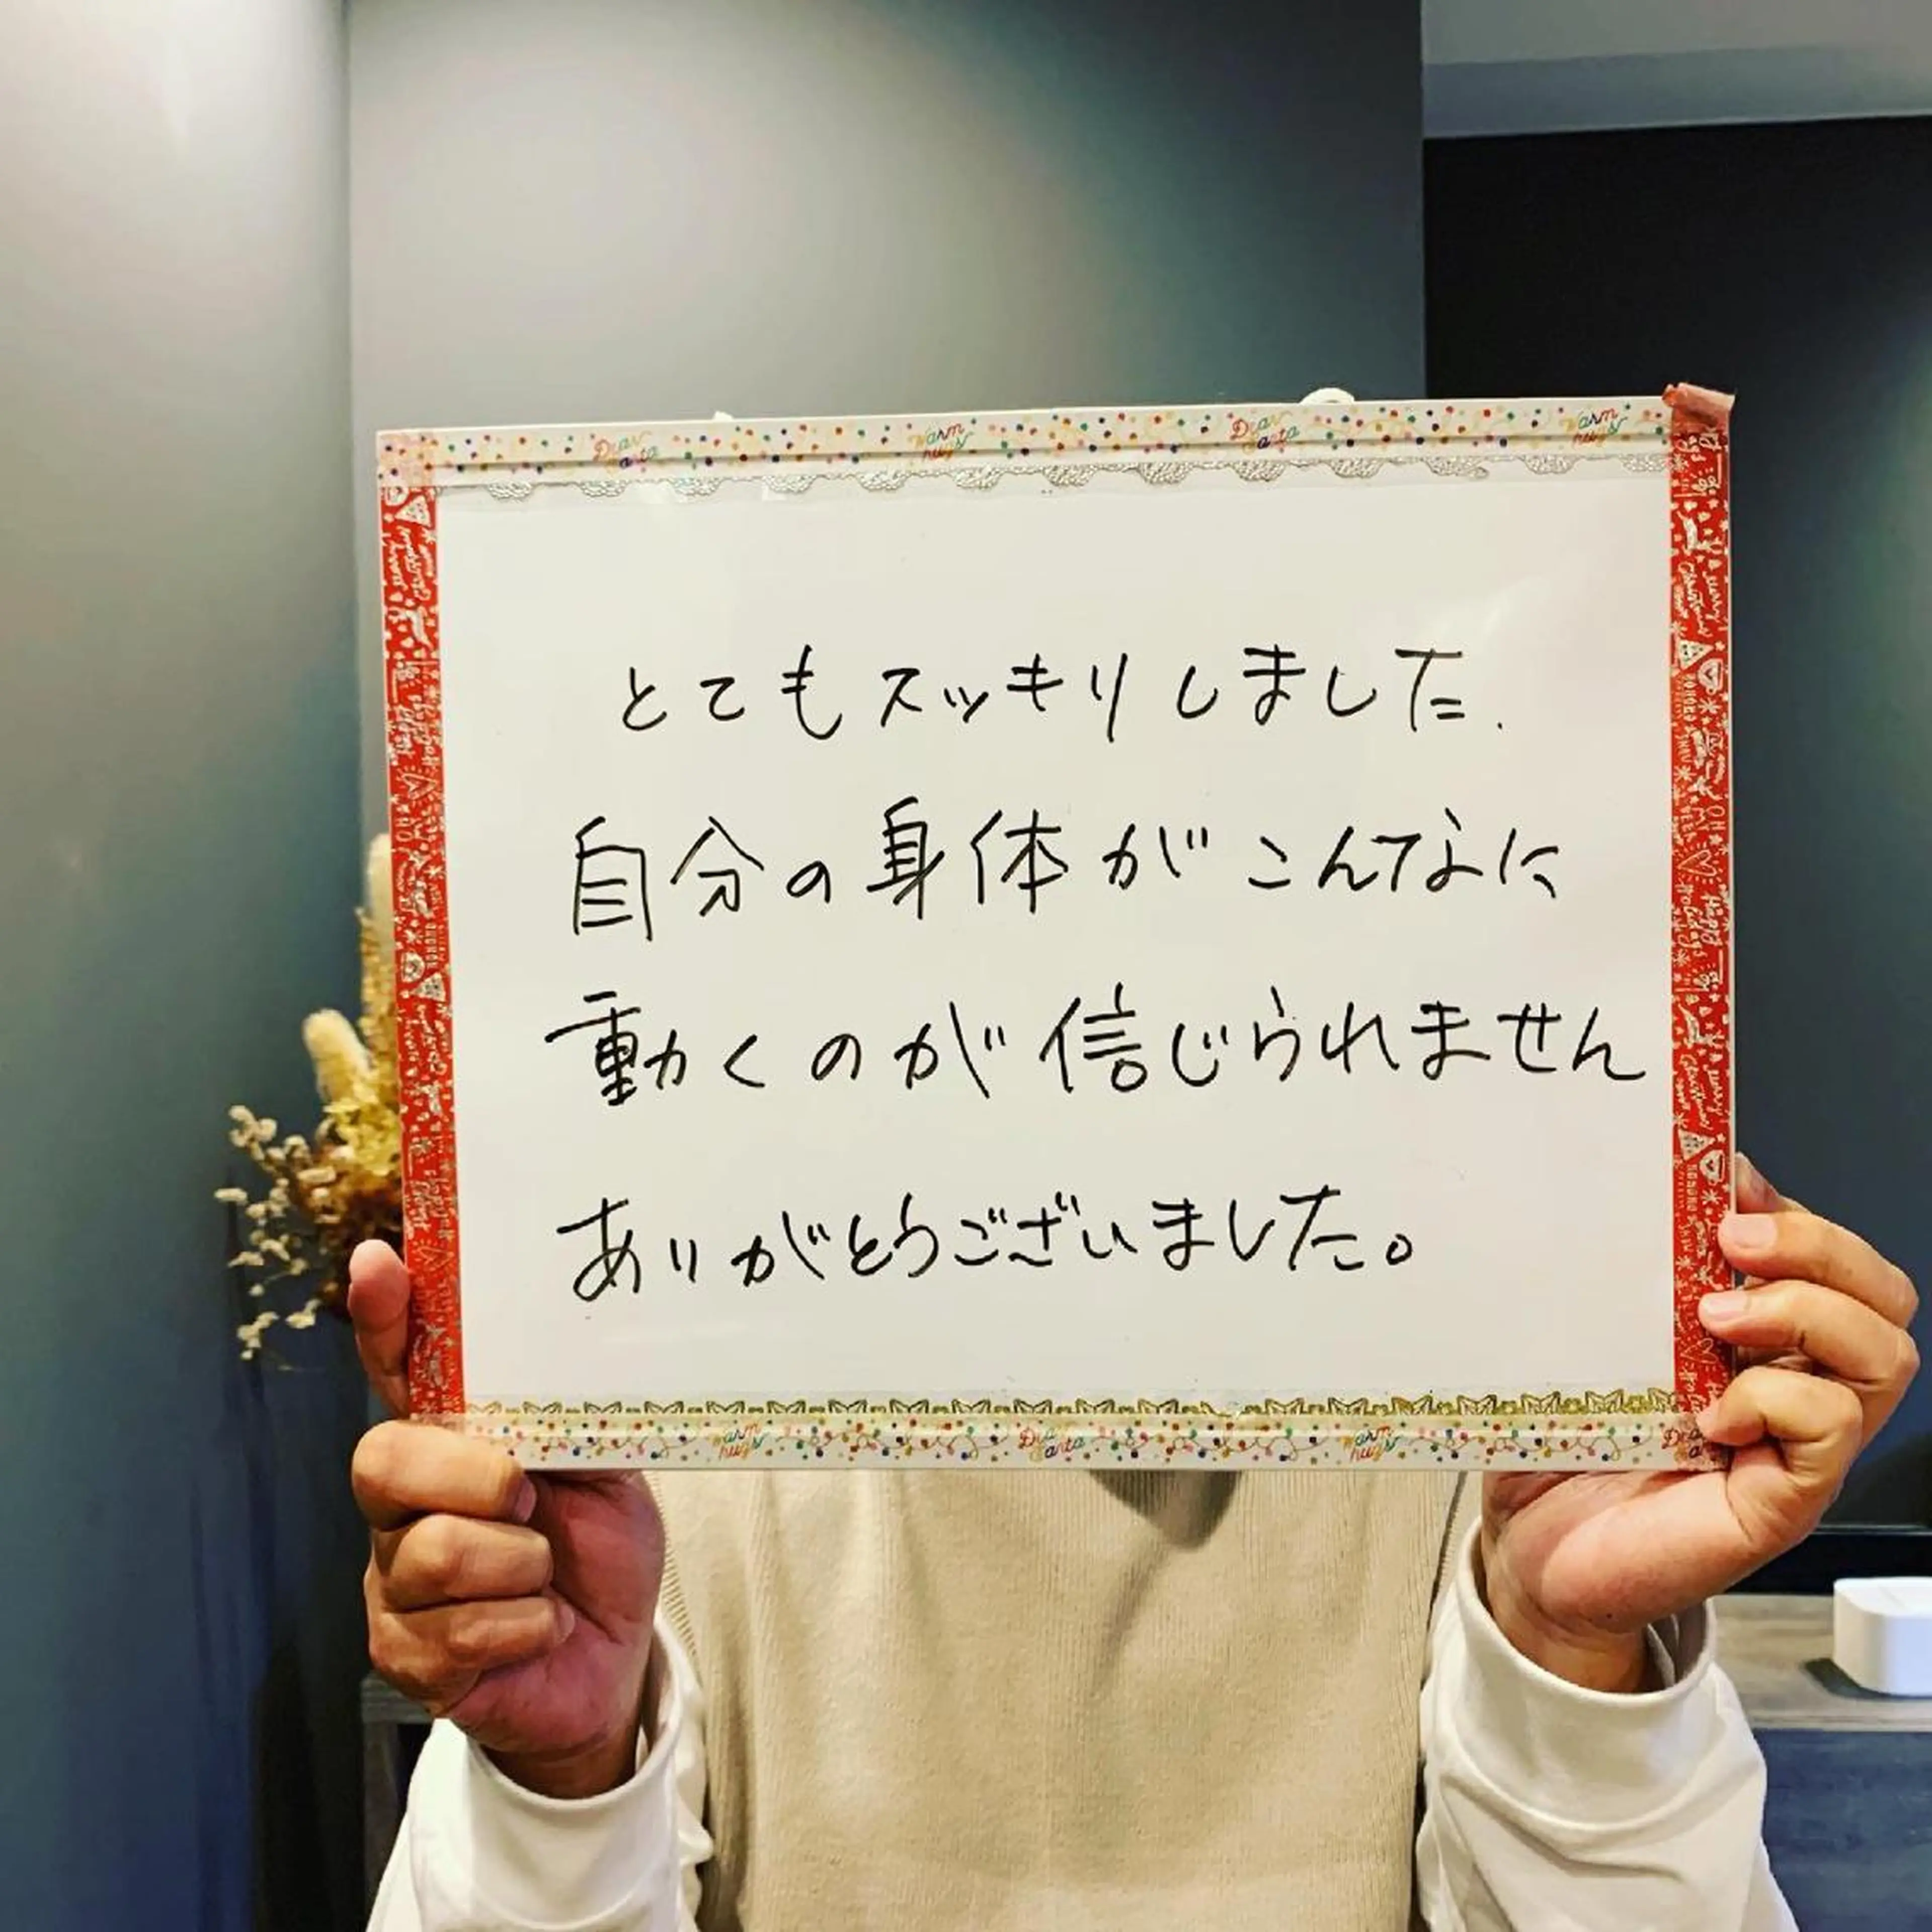 Dear Santa Warm hugs Dear Santa Warm hugs
とてもスッキリしました.
自分の身体がこんなに
動くのが信じられません
ありがとうございました。
Warm hugs Dear Santa Warm hugs